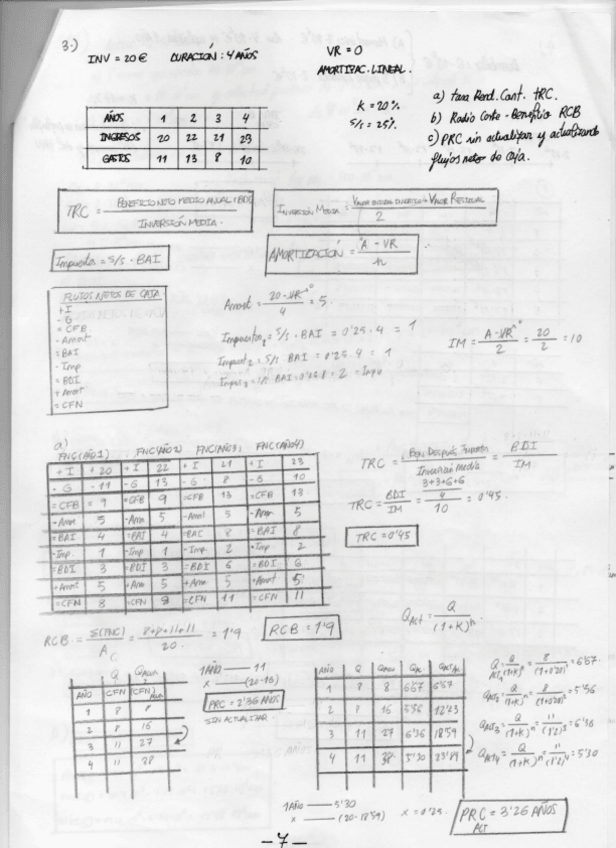 3.)
INV = 20 € DURACIÓN: 4 AÑOS VR = 0
AMORTIZAC. LINEAL.
K = 20%
S/S = 25%
a) tasa Rend. Cont. TRC.
b) Radio Coste-Beneficio RCB
c) PRC sin actualizar y actualizando
flujos netos de caja.
AÑOS 1 2 3 4
INGRESOS 20 22 21 23
GASTOS 11 13 8 10
TRC = BENEFICIO NETO MEDIO ANUAL (BDI) / INVERSIÓN MEDIA.
INVERSIÓN MEDIA =
VALOR RESIDUAL
2
Impuestos = S/S · BAI
AMORTIZACIÓN = A - VR / n
FLUJOS NETOS DE CAJA
+ I
- G
= CFB
- Amort
= BAI
- Imp
= BDI
+ Amort
= CFN
Amort = 20 - VR⁰ / 4 = 5.
Impuestos = S/S · BAI = 0'25 · 4 = 1
Impuest₂ = S/S · BAI = 0'25 · 4 = 1
IM = A - VR⁰ / 2 = 20 / 2 = 10
a)
FNC (AÑO 1) FNC (AÑO 2) FNC (AÑO 3) FNC (AÑO 4)
+ I + 20 + I 22 + I 21 + I 23
- G - 11 - G 13 - G 8 - G 10
= CFB = 9 = CFB 9 = CFB 13 = CFB 13
- Amo 5 - Am 5 - Amo 5 - Amo 5
= BAI 4 = BAI 4 = BAI 8 = BAI 8
- Imp. 1 - Imp 1 - Imp 2 - Imp 2
= BDI 3 = BDI 3 = BDI 6 = BDI 6
+ Amo 5 + Am 5 + Amo 5 + Amort 5
= CFN 8 = CFN 8 = CFN 11 = CFN 11
TRC = Ben Después / Inversión Media = BDI / IM
TRC = BDI / IM = 3+3+6+6 / 4 / 10 = 0'45.
TRC = 0'45
RCB = Σ(FNC) / A = 8+8+11+11 / 20 = 1'9
RCB = 1'9
Q Act = Q / (1+K)ⁿ
c)
Q Q Acum
AÑO CFN (CFN) Acum
1 8 8
2 8 16
3 11 27
4 11 38
1 AÑO —— 11
x —— (20-16)
PRC = 2'36 AÑOS
SIN ACTUALIZAR
AÑO Q QACU QAC. QACT AC.
1 8 8 6'67 6'67
2 8 16 5'56 12'23
3 11 27 6'36 18'59
4 11 38 5'30 23'89
Q ACT₁ = Q / (1+K)ⁿ = 8 / (1+0'20)¹ = 6'67
Q ACT₂ = Q / (1+K)ⁿ = 8 / (1+0'20)² = 5'56
Q ACT₃ = Q / (1+K)ⁿ = 11 / (1'2)³ = 6'36
Q ACT₄ = Q / (1+K)ⁿ = 11 / (1'2)⁴ = 5'30
1 AÑO —— 5'30
x —— (20-18'59)
PRC ACT = 3'26 AÑOS
-7-